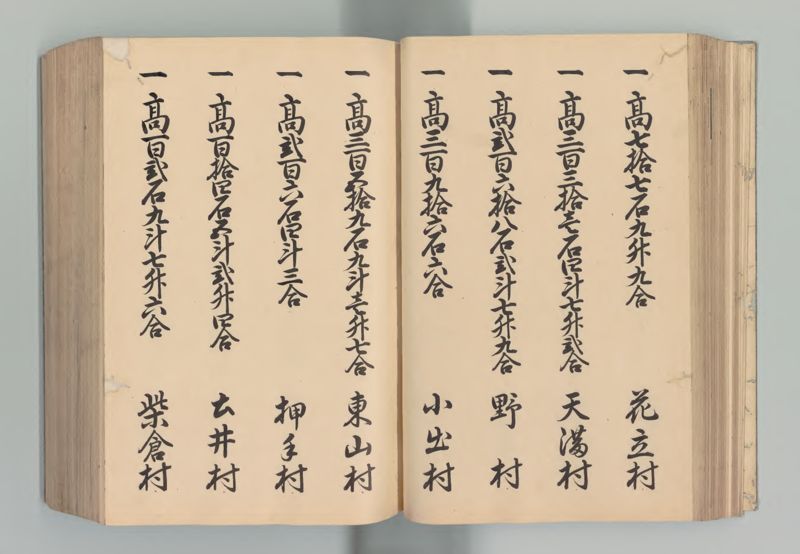 一 高七拾七石九升九合 花立村
一 高三百三拾壱石四斗七升弐合 天満村
一 高弐百六拾八石弐斗七升九合 野村
一 高三百九拾六石六合 小出村
一 高三百五拾九石九斗壱升七合 東山村
一 高弐百六石四斗三合 押手村
一 高百拾四石五斗弐升四合 土井村
一 高百弐石九斗七升六合 柴倉村